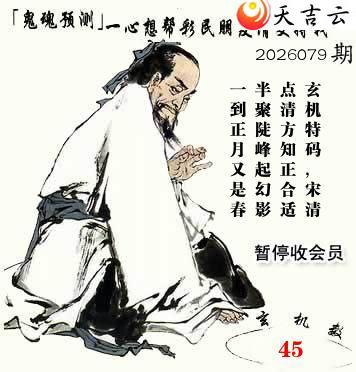 天吉云
「鬼魂预测」一心想帮彩民朋
2026079期
玄机特码,宋清
点清方知正合适
半聚陡峰起幻影
一到正月又是春
暂停收会员
玄机
45